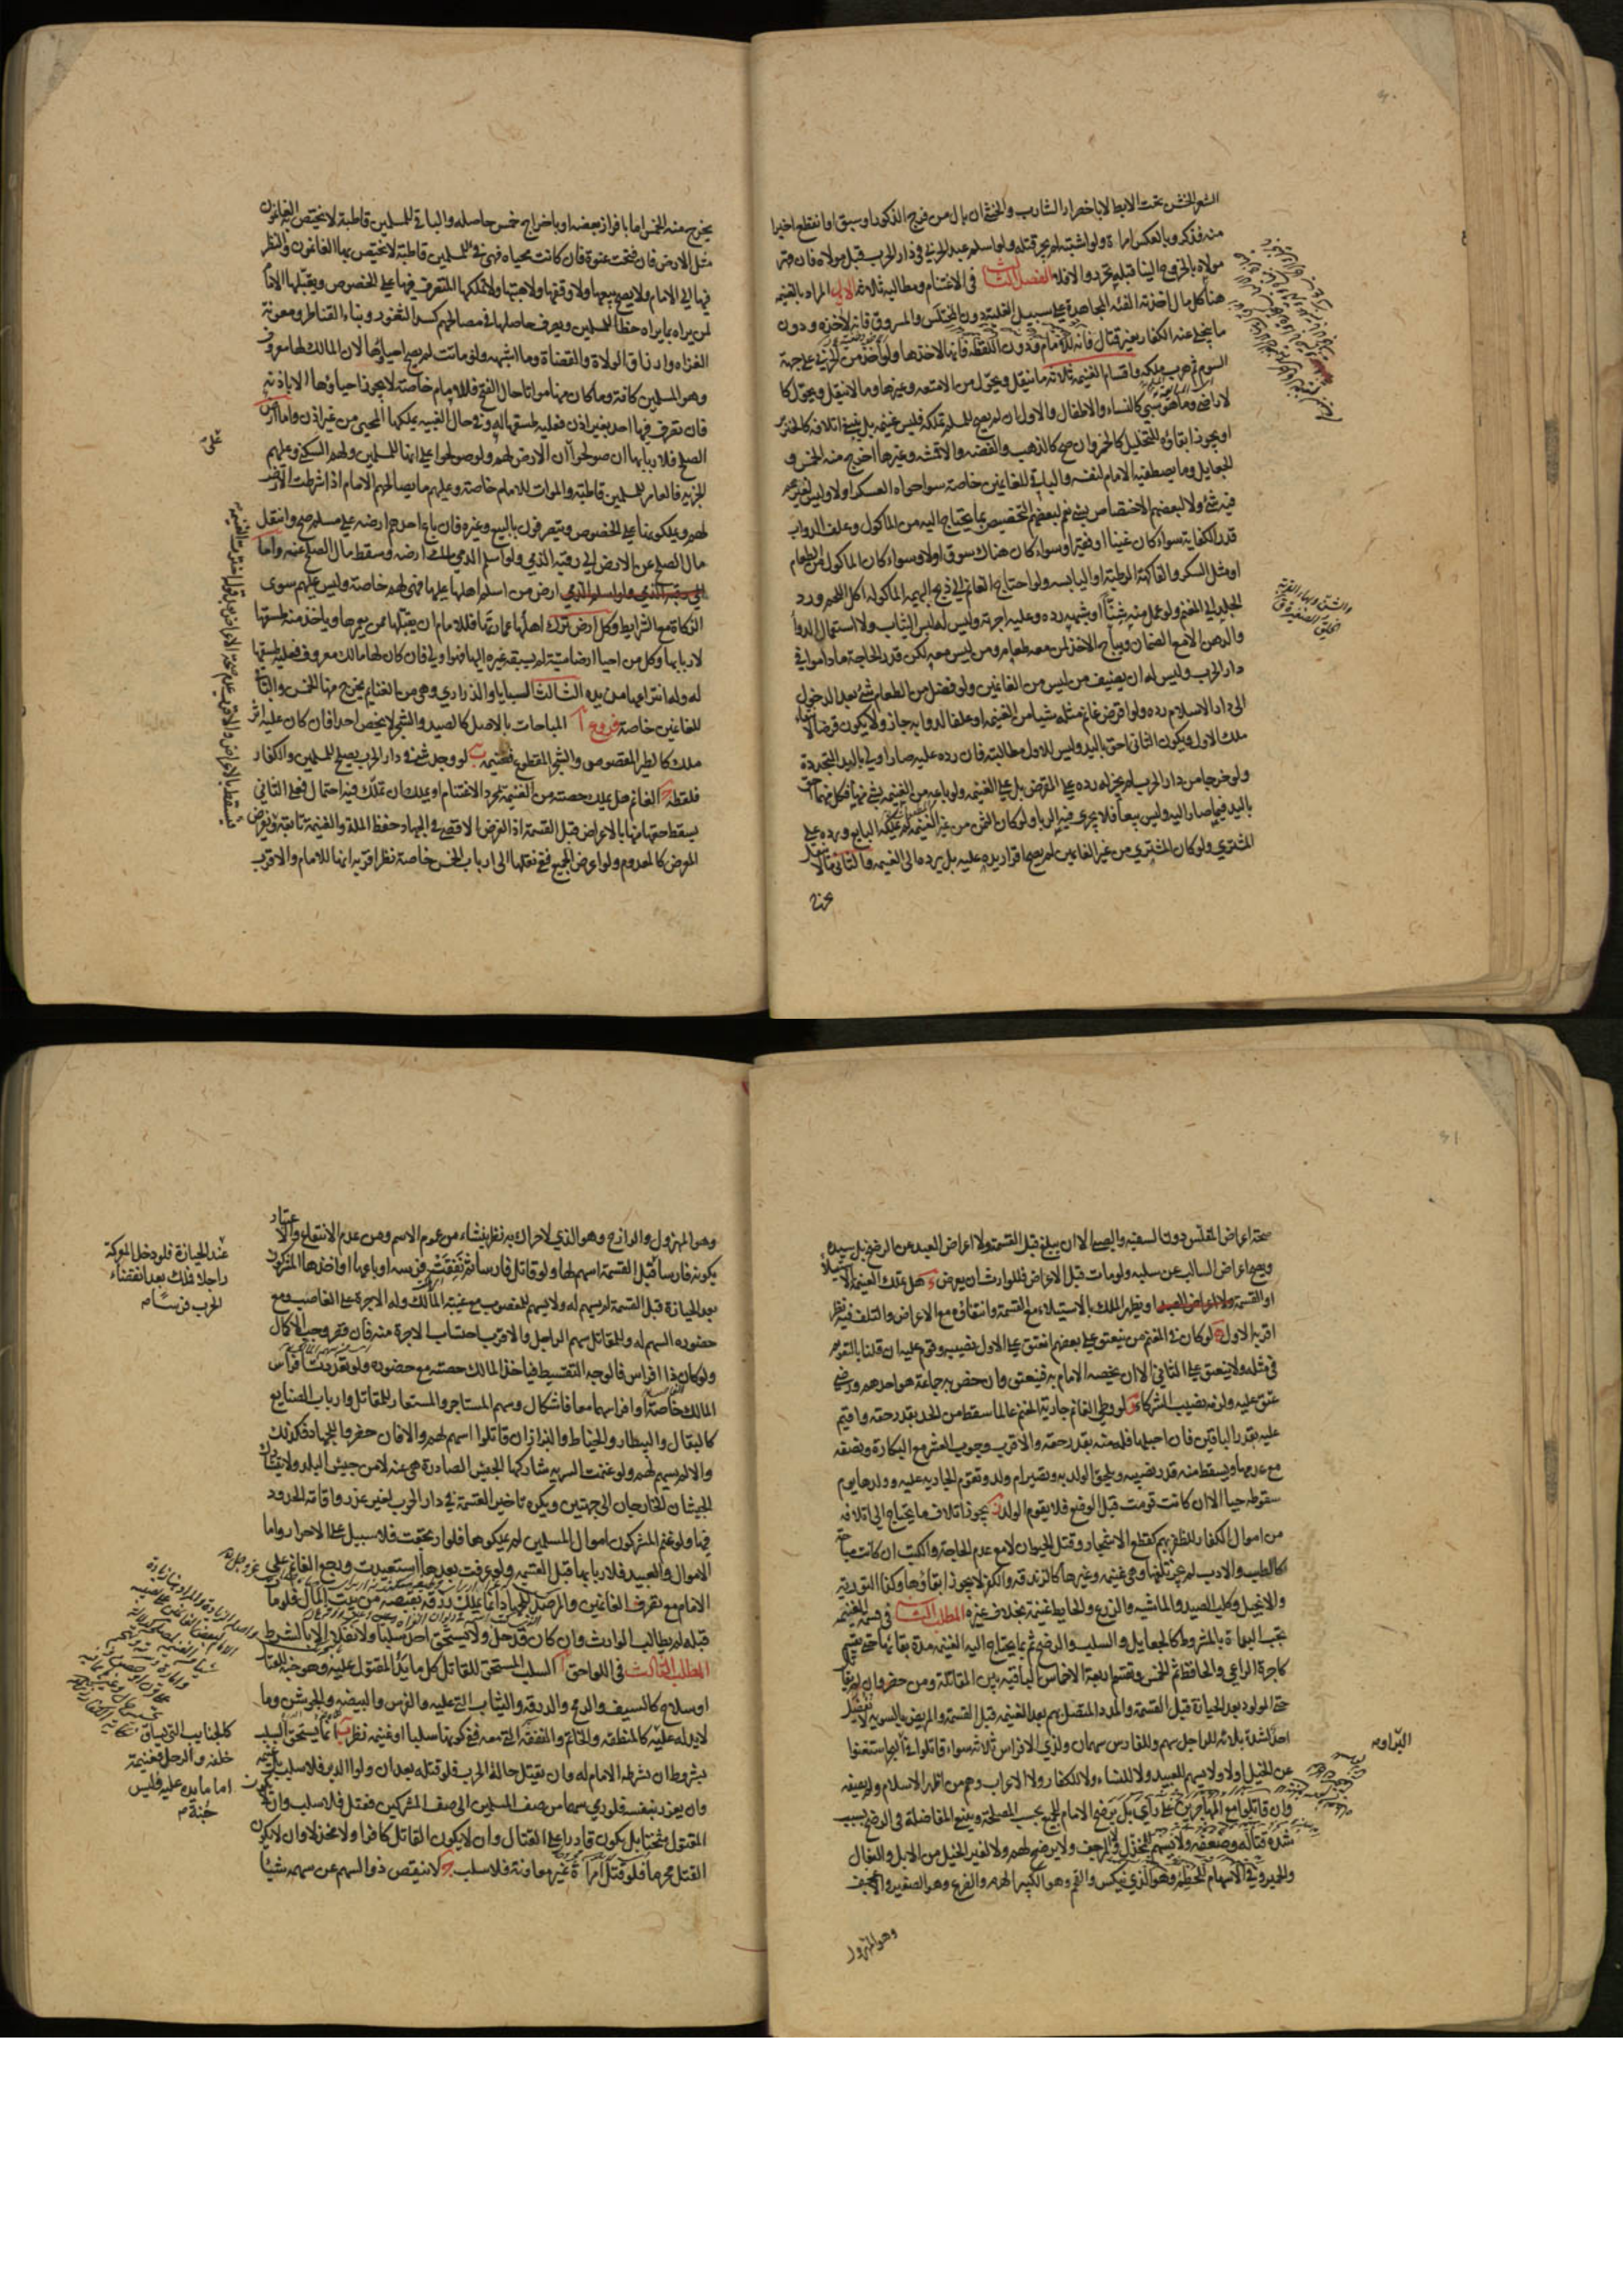 الشعر الخشن تحت الابط لا باخضرار الشارب والخنثى ان بال من فرج الذكور او سبق او انقطع اخيرا
منه فذكر وبالعكس امراة ولو اشتبه لم يجز قتله ولو اسلم عبد الحربي في دار الحرب قبل مولاه فان
مولاه بالخروج الينا قبله تحرر والا فلا الفصل الثالث في الاغتنام ومطالبه ثلاثة الاول المراد بالغنيمة
هنا كل مال اخذته الفئة المجاهدة على سبيل الغلبة دون المختلس والمسروق فانه لآخذه ودون
ما ينجلي عنه الكفار بغير قتال فانه للامام ودون اللقطة فانها لآخذها ولو اخذ من الحربي على جهة
السوم ثم هرب ملكه واقسام الغنيمة ثلاثة ما ينقل ويحول من الامتعة وغيرها وما لا ينقل ويحول كا
لاراضي وما هو سبي كالنساء والاطفال والاول ان لم يصح للمسلم تملكه فليس غنيمة بل ينبغي اتلافه كالخنزير
او يجوز ابقاؤه للتخليل كالخمر وان صح كالذهب والفضة والاقمشة وغيرها اخرج منه الخمس و
الجعايل وما يصطفيه الامام لنفسه والباقي للغانمين خاصة سواء حواه العسكر او لا وليس لغيرهم
فيه شئ ولا لبعضهم الاختصاص بشئ نعم لبعضهم التخصيص بما يحتاج اليه من الماكول وعلف الدواب
قدر الكفاية سواء كان غنيا او فقيرا وسواء كان هناك سوق او لا وسواء كان الماكول من الطعام
او مثل السكر والفاكهة الرطبة او اليابسة ولو احتاج الغانم الى ذبح البهيمة الماكولة اكل اللحم ورد
الجلد الى المغنم ولو عمل منه شيئا او شبهه رده وعليه اجرته وليس له لبس الثياب ولا استعمال الدواء
والدهن الا مع الضمان ويباح الاخذ لمن معه طعام ومن ليس معه لكن قدر الحاجة ما داموا في
دار الحرب وليس له ان يضيف من ليس من الغانمين ولو فضل من الطعام شئ بعد الدخول
الى دار الاسلام رده ولو اقرض غانم مثله شيئا من الغنيمة او علفا لدوابه جاز ولا يكون قرضا لا
ملك الاول ويكون الثاني احق باليد وليس للاول مطالبته فان رده عليه صار اولى باليد المتجددة
ولو خرجا من دار الحرب لم يجز له رده على المقرض بل على الغنيمة ولو باعه من الغنيمة بشئ منها فكل منهما احق
باليد فيما صار اليه وليس بيعا فلا يجري فيه الربا ولو كان الثمن من غير الغنيمة لم يملكه البايع ورده على
المشتري ولو كان المشتري من غير الغانمين لم يصح اقرار يده عليه بل يرده الى الغنيمة والثاني مالا
يخرج منه الخمس اما بافراز بعضه او باخراج خمس حاصله والباقي للمسلمين قاطبة لا يختص به الغانمون
مثل الارض فان فتحت عنوة فان كانت محياة فهي فئ للمسلمين قاطبة لا يختص بها الغانمون والنظر
فيها الى الامام ولا يصح بيعها ولا وقفها ولا هبتها ولا تملكها المتصرف فيها على الخصوص ويقبلها الامام
لمن يراه بما يراه حظا للمسلمين ويصرف حاصلها في مصالحهم كسد الثغور وبناء القناطر ومعونة
الغزاة وارزاق الولاة والقضاة وما اشبهه ولو ماتت لم يصح احياؤها لان المالك لها معروف
وهو المسلمين كافة وما كان منها مواتا حال الفتح فللامام خاصة لا يجوز احياؤها الا باذنه
فان تصرف فيها احد بغير اذن فعليه طسقها له وفي حال الغيبة يملكها المحيي من غير اذن واما ارض
الصلح فلاربابها ان صولحوا ان الارض لهم ولو صولحوا على انها للمسلمين ولهم السكنى وعليهم
الجزية فالعامر للمسلمين قاطبة والموات للامام خاصة وعليهم ما يصالحهم الامام اذا شرطت الارض
لهم ويملكونها على الخصوص ويتصرفون بالبيع وغيره فان باع احدهم ارضه على مسلم صح وانتقل
مال الصلح عن الارض الى رقبة الذمي ولو اسلم الذمي ملك ارضه وسقط مال الصلح عنه واما
ارض من اسلم اهلها عليها فهي لهم خاصة وليس عليهم سوى
الزكاة مع الشرايط وكل ارض ترك اهلها عمارتها فللامام ان يقبلها ممن يعمرها وياخذ منه طسقها
لاربابها وكل من احيا ارضا ميتة لم يسبقه غيره اليها فهو اولى فان كان لها مالك معروف فعليه طسقها
له وله انتزاعها من يده الثالث السبايا والذراري وهي من الغنايم يخرج منها الخمس والباقي
للغانمين خاصة فروع ا المباحات بالاصل كالصيد والشجر لا يختص احدا فان كان عليه اثر
ملك كالطير المقصوص والشجر المقطوع فغنيمة ب لو وجد شئ في دار الحرب يصلح للمسلمين والكفار
فلقطة ج الغانم هل يملك حصته من الغنيمة بمجرد الاغتنام او يملك ان تملك فيه احتمال فعلى الثاني
يسقط حقها منها بالاعراض قبل القسمة اذ الغرض الاقصى في الجهاد حفظ الملة والغنيمة تابعة ويفرض
المعرض كالمعدوم ولو اعرض الجميع ففي نقلها الى ارباب الخمس خاصة نظر اقربه انها للامام والاقرب
صحة اعراض المفلس دون السفيه والصبي الا ان يبلغ قبل القسمة ولا اعراض العبد عن الرضخ بل سيده
ويصح اعراض السالب عن سلبه ولو مات قبل الاعراض فللوارث ان يعرض د هل يملك الغنيمة بالاستيلاء
او القسمة او يظهر الملك بالاستيلاء مع القسمة وانتفائه مع الاعراض والتلف فيه نظر
اقربه الاول ه لو كان في المغنم من ينعتق على بعضهم انعتق على الاول نصيبه وقوم عليه ان قلنا بالتقويم
في مثله ولا ينعتق على الثاني الا ان يخصه الامام به فينعتق وان خص به جماعة هو احدهم ورضي
عتق عليه ولزمه نصيب الشركاء و لو وطئ الغانم جارية المغنم عالما سقط من الحد بقدر حقه واقيم
عليه بقدر الباقين فان احبلها فله منه بقدر حقه والاقرب وجوب العشر مع البكارة ونصفه
مع عدمها ويسقط منه قدر نصيبه ويلحق الولد به وتصير ام ولد وتقوم الجارية عليه وولدها يوم
سقوطه حيا الا ان كانت قومت قبل الوضع فلا يقوم الولد ز يجوز اتلاف ما يحتاج الى اتلافه
من اموال الكفار للظفر بهم كقطع الاشجار وقتل الحيوان لا مع عدم الحاجة والكتب ان كانت مباحة
كالطب والادب لم يجز تلفها وهي غنيمة وغيرها كالزندقة والكفر لا يجوز ابقاؤها وكذا التورية
والانجيل وكلب الصيد والماشية والزرع والحايط غنيمة بخلاف غيره المطلب الثاني في قسمة الغنيمة
يجب البداة بالمشروط كالجعايل والسلب والرضخ ثم بما يحتاج اليه الغنيمة مدة بقائها حتى يقسم
كاجرة الراعي والحافظ ثم الخمس وتقسم اربعة الاخماس الباقية بين المقاتلة ومن حضر وان لم يقاتل
حتى المولود بعد الحيازة قبل القسمة والمدد المتصل بهم بعد الغنيمة قبل القسمة والمريض بالسوية لا يفضل
احد لشدة بلائه للراجل سهم وللفارس سهمان ولذي الافراس ثلاثة سواء قاتلوا في البر استغنوا
عن الخيل او لا ولا يسهم للعبيد ولا للنساء ولا للكفار ولا الاعراب وهم من اظهر الاسلام ولم يصفه
وان قاتلوا مع المهاجرين على راي بل يرضخ الامام للجميع بحسب المصلحة وينبغي المفاضلة في الرضخ بسبب
شدة قتاله وضعفه ولا يسهم للمخذل ولا المرجف ولا يرضخ لهم ولا لغير الخيل من الابل والبغال
والحمير وفي الاسهام للحطم وهو الذي ينكس والقحم وهو الكبير الهرم والضرع وهو الصغير والاعجف
وهو المهزول
وهو المهزول والرازح وهو الذي لا حراك به نظر ينشاء من عموم الاسم ومن عدم الانتفاع والاعتبار
بكونه فارسا قبل القسمة اسهم لها ولو قاتل فارسا ثم نفقت فرسه او باعها او اخذها المشركون
بعد الحيازة قبل القسمة لم يسهم له ولا يسهم للمغصوب مع غيبة المالك وله الاجرة على الغاصب ومع
حضوره السهم له وللمقاتل سهم الراجل والاقرب احتساب الاجرة منه فان قصر وجب الاكمال
ولو كان ذا افراس فالوجه التقسيط فياخذ المالك حصته مع حضوره ولو تعددت افراس
المالك خاصة او افراسهما معا فاشكال وسهم المستاجر والمستعار للمقاتل وارباب الصنايع
كالبقال والبيطار والخياط والبزاز ان قاتلوا اسهم لهم والا فان حضروا للجهاد فكذلك
والا لم يسهم لهم ولو غنمت السرية شاركها الجيش الصادرة هي عنه لا من جيش البلد ولا يتشارك
الجيشان الخارجان الى جهتين ويكره تاخير القسمة في دار الحرب لغير عذر واقامة الحدود
فيها ولو غنم المشركون اموال المسلمين لم يملكوها فلو ارتجعت فلا سبيل على الاحرار واما
الاموال والعبيد فلاربابها قبل القسمة ولو عرفت بعدها استعيدت ويرجع الغانم على
الامام مع تفرق الغانمين والمرصد للجهاد انما يملك رزقه بقبضه من بيت المال فلو مات
قبله لم يطالب الوارث وان كان قد حل ولا يستحق احد سلبا ولا نفلا الا بالشرط
المطلب الثالث في اللواحق ا السلب المستحق للقاتل كل ما يد المقتول عليه وهو جنة للقتال
او سلاح كالسيف والدرع والدرقة والثياب التي عليه والفرس والبيضة والجوشن وما
لا يد له عليه كالمنطقة والخاتم والنفقة التي معه ففي كونها سلبا او غنيمة نظر ب انما يستحق السلب
بشروط ان يشرطه الامام له وان يقتل حالة الحرب فلو قتله بعد ان ولوا الدبر فلا سلب بل غنيمة
وان يغرر بنفسه فلو رمى سهما من صف المسلمين الى صف المشركين فقتل فلا سلب وان لا يكون
المقتول مثخنا بل يكون قادرا على القتال وان لا يكون القاتل كافرا ولا مخذلا وان لا يكون
القتل محرما فلو قتل امراة غير معاونة فلا سلب ج لا ينقص ذو السهم عن سهمه شيئا
عند الحيازة فلو دخل المعركة
راجلا فملك بعد انقضاء
الحرب فرسا
كالجنايب التي تساق
خلفه والرحل فغنيمة
اما ما يده عليه فليس
جنة